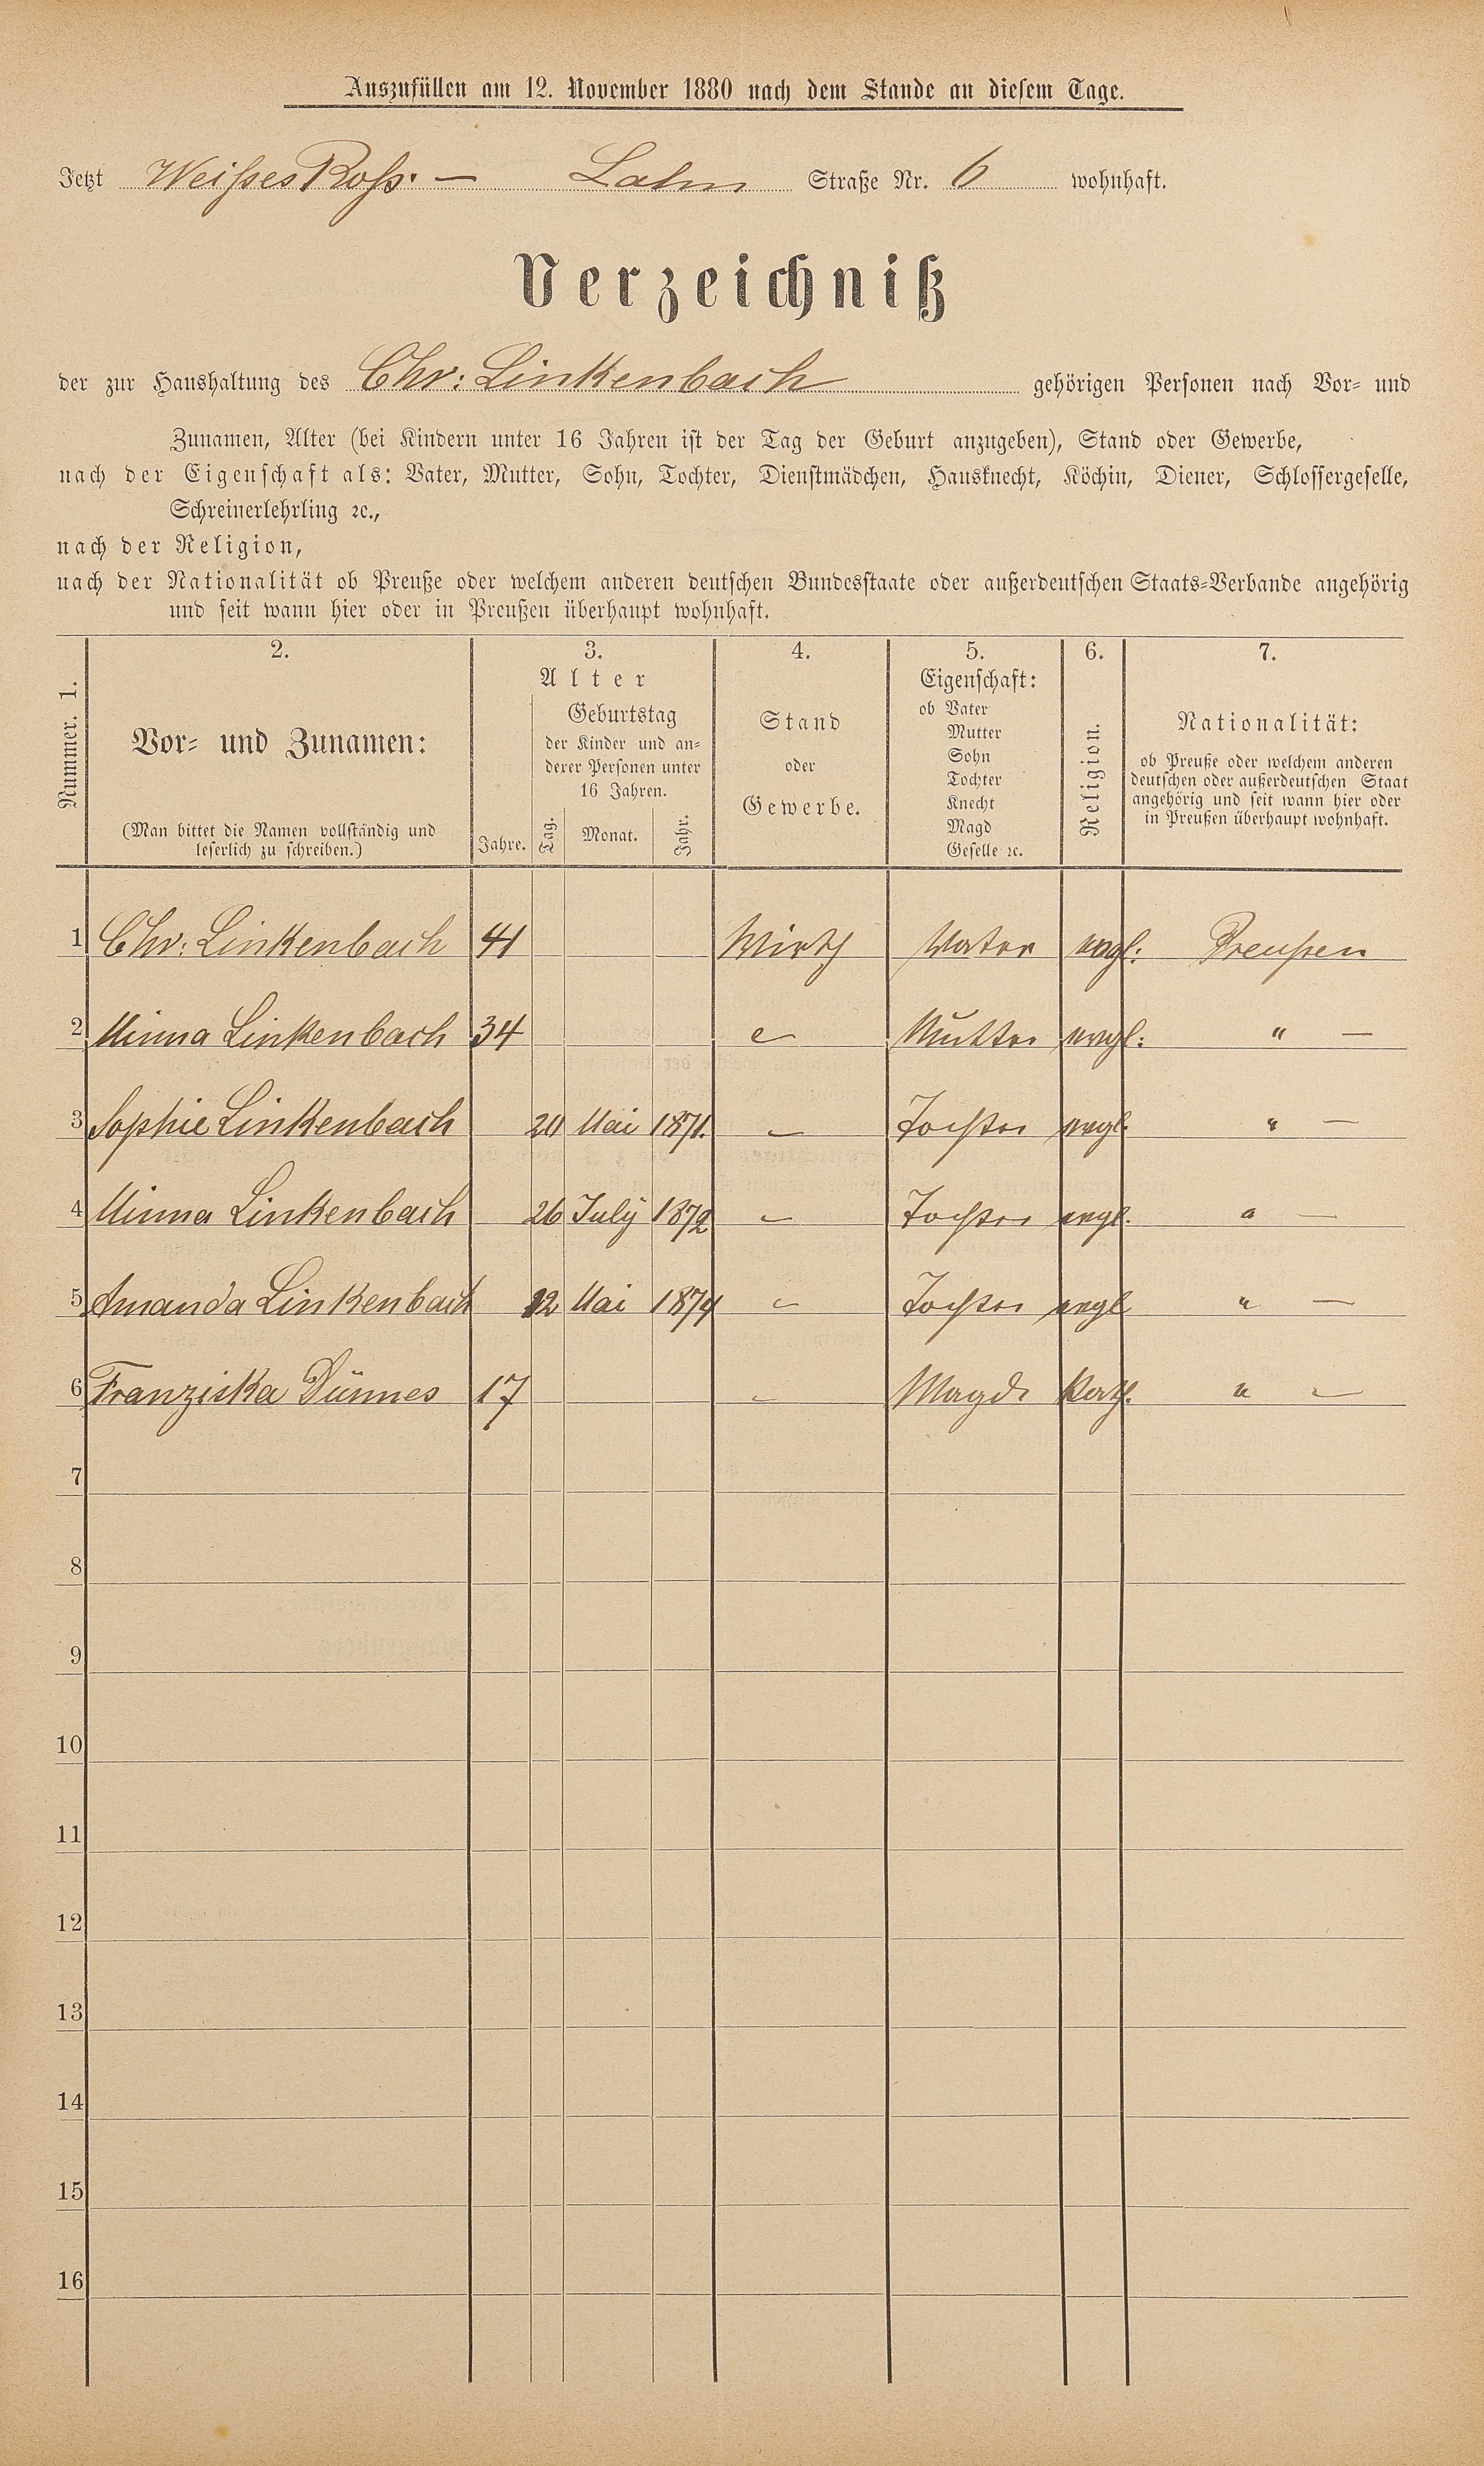 Auszufüllen am 12. November 1880 nach dem Stande an diesem Tage.
Jetzt Weißes Roß. — Lahn Straße Nr. 6 wohnhaft.
Verzeichniß
der zur Haushaltung des Chr: Linkenbach gehörigen Personen nach Vor- und
Zunamen, Alter (bei Kindern unter 16 Jahren ist der Tag der Geburt anzugeben), Stand oder Gewerbe,
nach der Eigenschaft als: Vater, Mutter, Sohn, Tochter, Dienstmädchen, Hausknecht, Köchin, Diener, Schlossergeselle,
Schreinerlehrling ꝛc.,
nach der Religion,
nach der Nationalität ob Preuße oder welchem anderen deutschen Bundesstaate oder außerdeutschen Staats-Verbande angehörig
und seit wann hier oder in Preußen überhaupt wohnhaft.
Nummer. 1.
2.
Vor- und Zunamen:
(Man bittet die Namen vollständig und
leserlich zu schreiben.)
3.
Alter
Jahre.
Geburtstag
der Kinder und an-
derer Personen unter
16 Jahren.
Tag. Monat. Jahr.
4.
Stand
oder
Gewerbe.
5.
Eigenschaft:
ob Vater
Mutter
Sohn
Tochter
Knecht
Magd
Geselle ꝛc.
6.
Religion.
7.
Nationalität:
ob Preuße oder welchem anderen
deutschen oder außerdeutschen Staat
angehörig und seit wann hier oder
in Preußen überhaupt wohnhaft.
1 Chr: Linkenbach 41 Wirth Vater evgl: Preußen
2 Minna Linkenbach 34 — Mutter evgl: " —
3 Sophie Linkenbach Mai 1871. — Tochter evgl. " —
4 Minna Linkenbach 26 July 1872 — Tochter evgl. " —
5 Amanda Linkenbach 12 Mai 1874 — Tochter evgl " —
6 Franziska Dünnes 17 — Magd Kath. " —
7
8
9
10
11
12
13
14
15
16